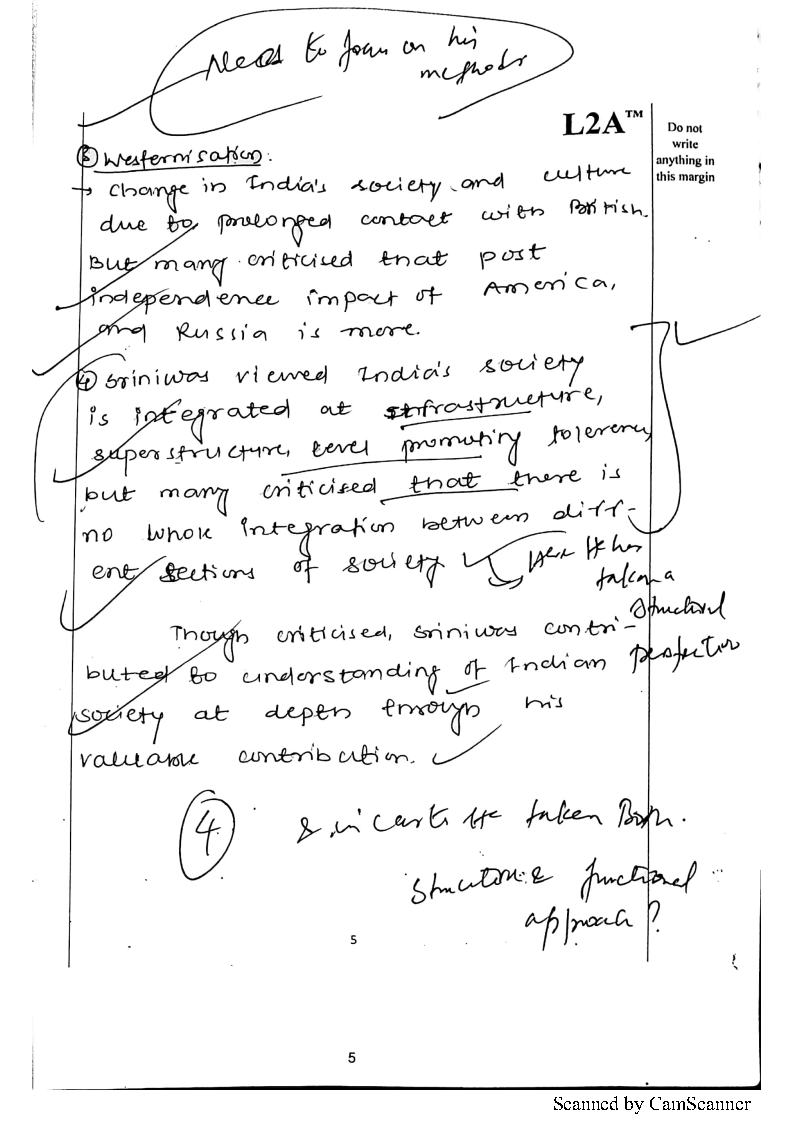 Need to focus on his
methods
L2A™
Do not
write
anything in
this margin
③ Westernisation:
→ Change in India's society and culture
due to prolonged contact with British.
But many criticised that post
independence impact of America,
and Russia is more.
④ Sriniwas viewed India's society
is integrated at infrastructure,
superstructure, level promoting tolerency
but many criticised that there is
no whole integration between diff-
ent sections of society
Here He has
taken a
structural
perspective
Though criticised, sriniwas contri-
buted to understanding of Indian
society at depth through his
valuable contribution.
4
& in caste He taken Both.
Structure & functional
approach?
5
5
Scanned by CamScanner